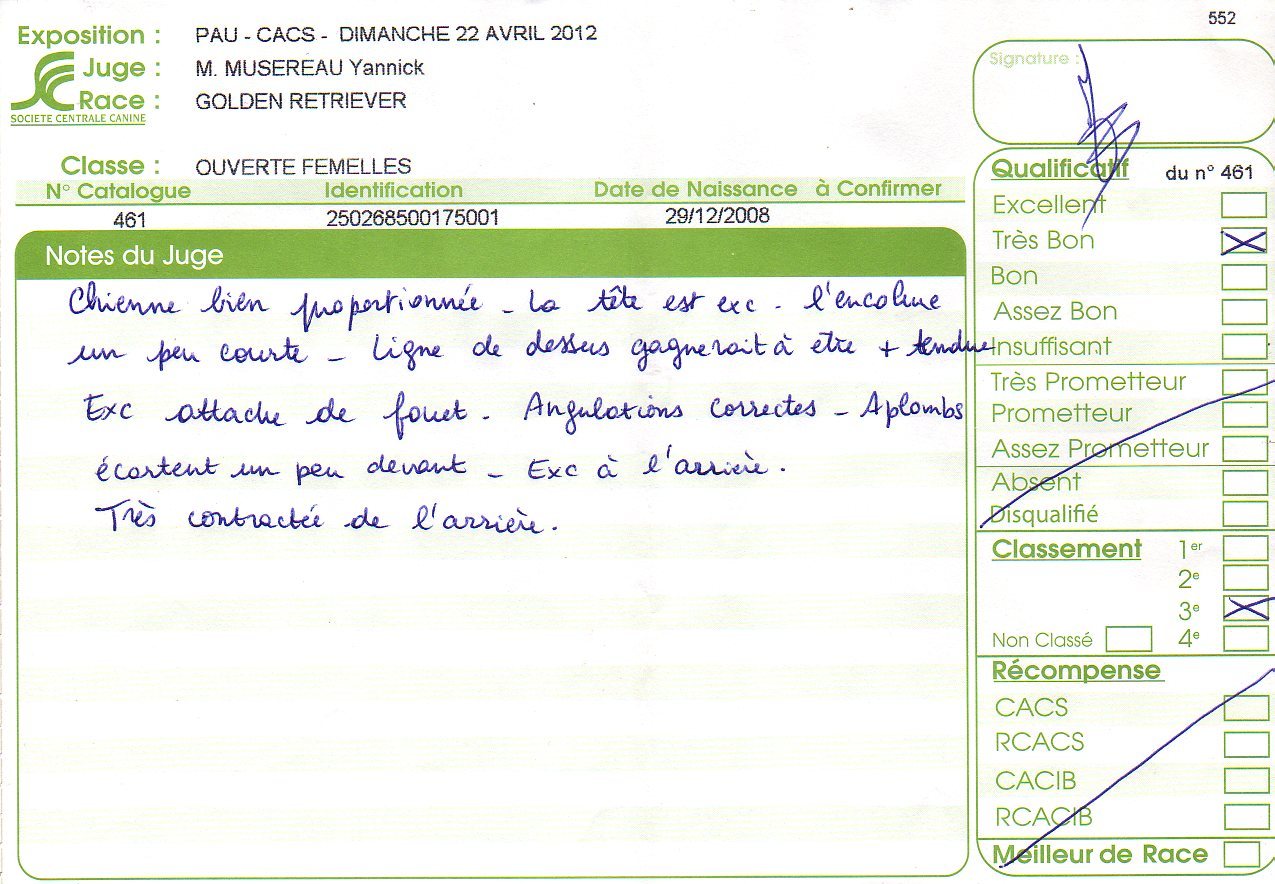 552
Exposition : PAU - CACS - DIMANCHE 22 AVRIL 2012
Juge : M. MUSEREAU Yannick
Race : GOLDEN RETRIEVER
SOCIETE CENTRALE CANINE
Classe : OUVERTE FEMELLES
N° Catalogue Identification Date de Naissance à Confirmer
461 250268500175001 29/12/2008
Notes du Juge
Chienne bien proportionnée - La tête est exc - l'encolure
un peu courte - Ligne de dessus gagnerait à etre + tendue
Exc attache de fouet - Angulations correctes - Aplombs
écartent un peu devant - Exc à l'arrière.
Très contractée de l'arrière.
Signature :
Qualificatif du n° 461
Excellent
Très Bon
Bon
Assez Bon
Insuffisant
Très Prometteur
Prometteur
Assez Prometteur
Absent
Disqualifié
Classement 1er
2e
3e
Non Classé 4e
Récompense
CACS
RCACS
CACIB
RCACIB
Meilleur de Race